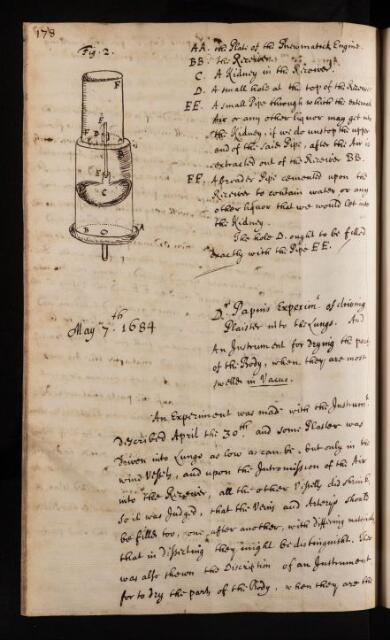 178
Fig. 2.
AA. the Plate of the Pneumatick Engine.
BB. the Receiver.
C. A Kidney in the Receiver.
D. A small hole at the top of the Receiver
EE. A small Pipe through which the external
Air or any other liquor may get into
the Kidney, if we do unstop the upper
end of the said Pipe, after the Air is
extracted out of the Receiver BB.
FF. A broader Pipe cemented upon the
Receiver to contain water or any
other liquor that we would let into
the Kidney.
The hole D. ought to be filled
exactly with the Pipe EE.
May 7th. 1684
Dr. Papins Experimt. of driving
Plaister into the Lungs. And
An Instrument for drying the parts
of the Body, when they are most
swelled in Vacuo.
An Experiment was made with the Instrumt.
described April the 30th. and some Plaster was
driven into Lungs as low as can be, but only in the
wind Vessels, and upon the Intromission of the Air
into the Receiver, all the other Vessells did shrink,
So it was Judged, that the Veins and Arterys should
be filled too, one after another, with differing materials
that in dissecting they might be distinguisht. There
was also shewn the Discription of an Instrument
for to dry the parts of the Body, when they are the